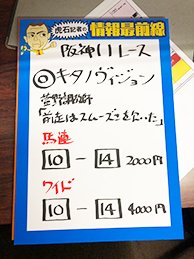 虎石記者の
情報最前線
阪神11レース
◎キタノヴィジョン
菅野調教師
「前走はスムーズさを欠いた」
馬連
10 － 14 2000円
ワイド
10 － 14 4000円